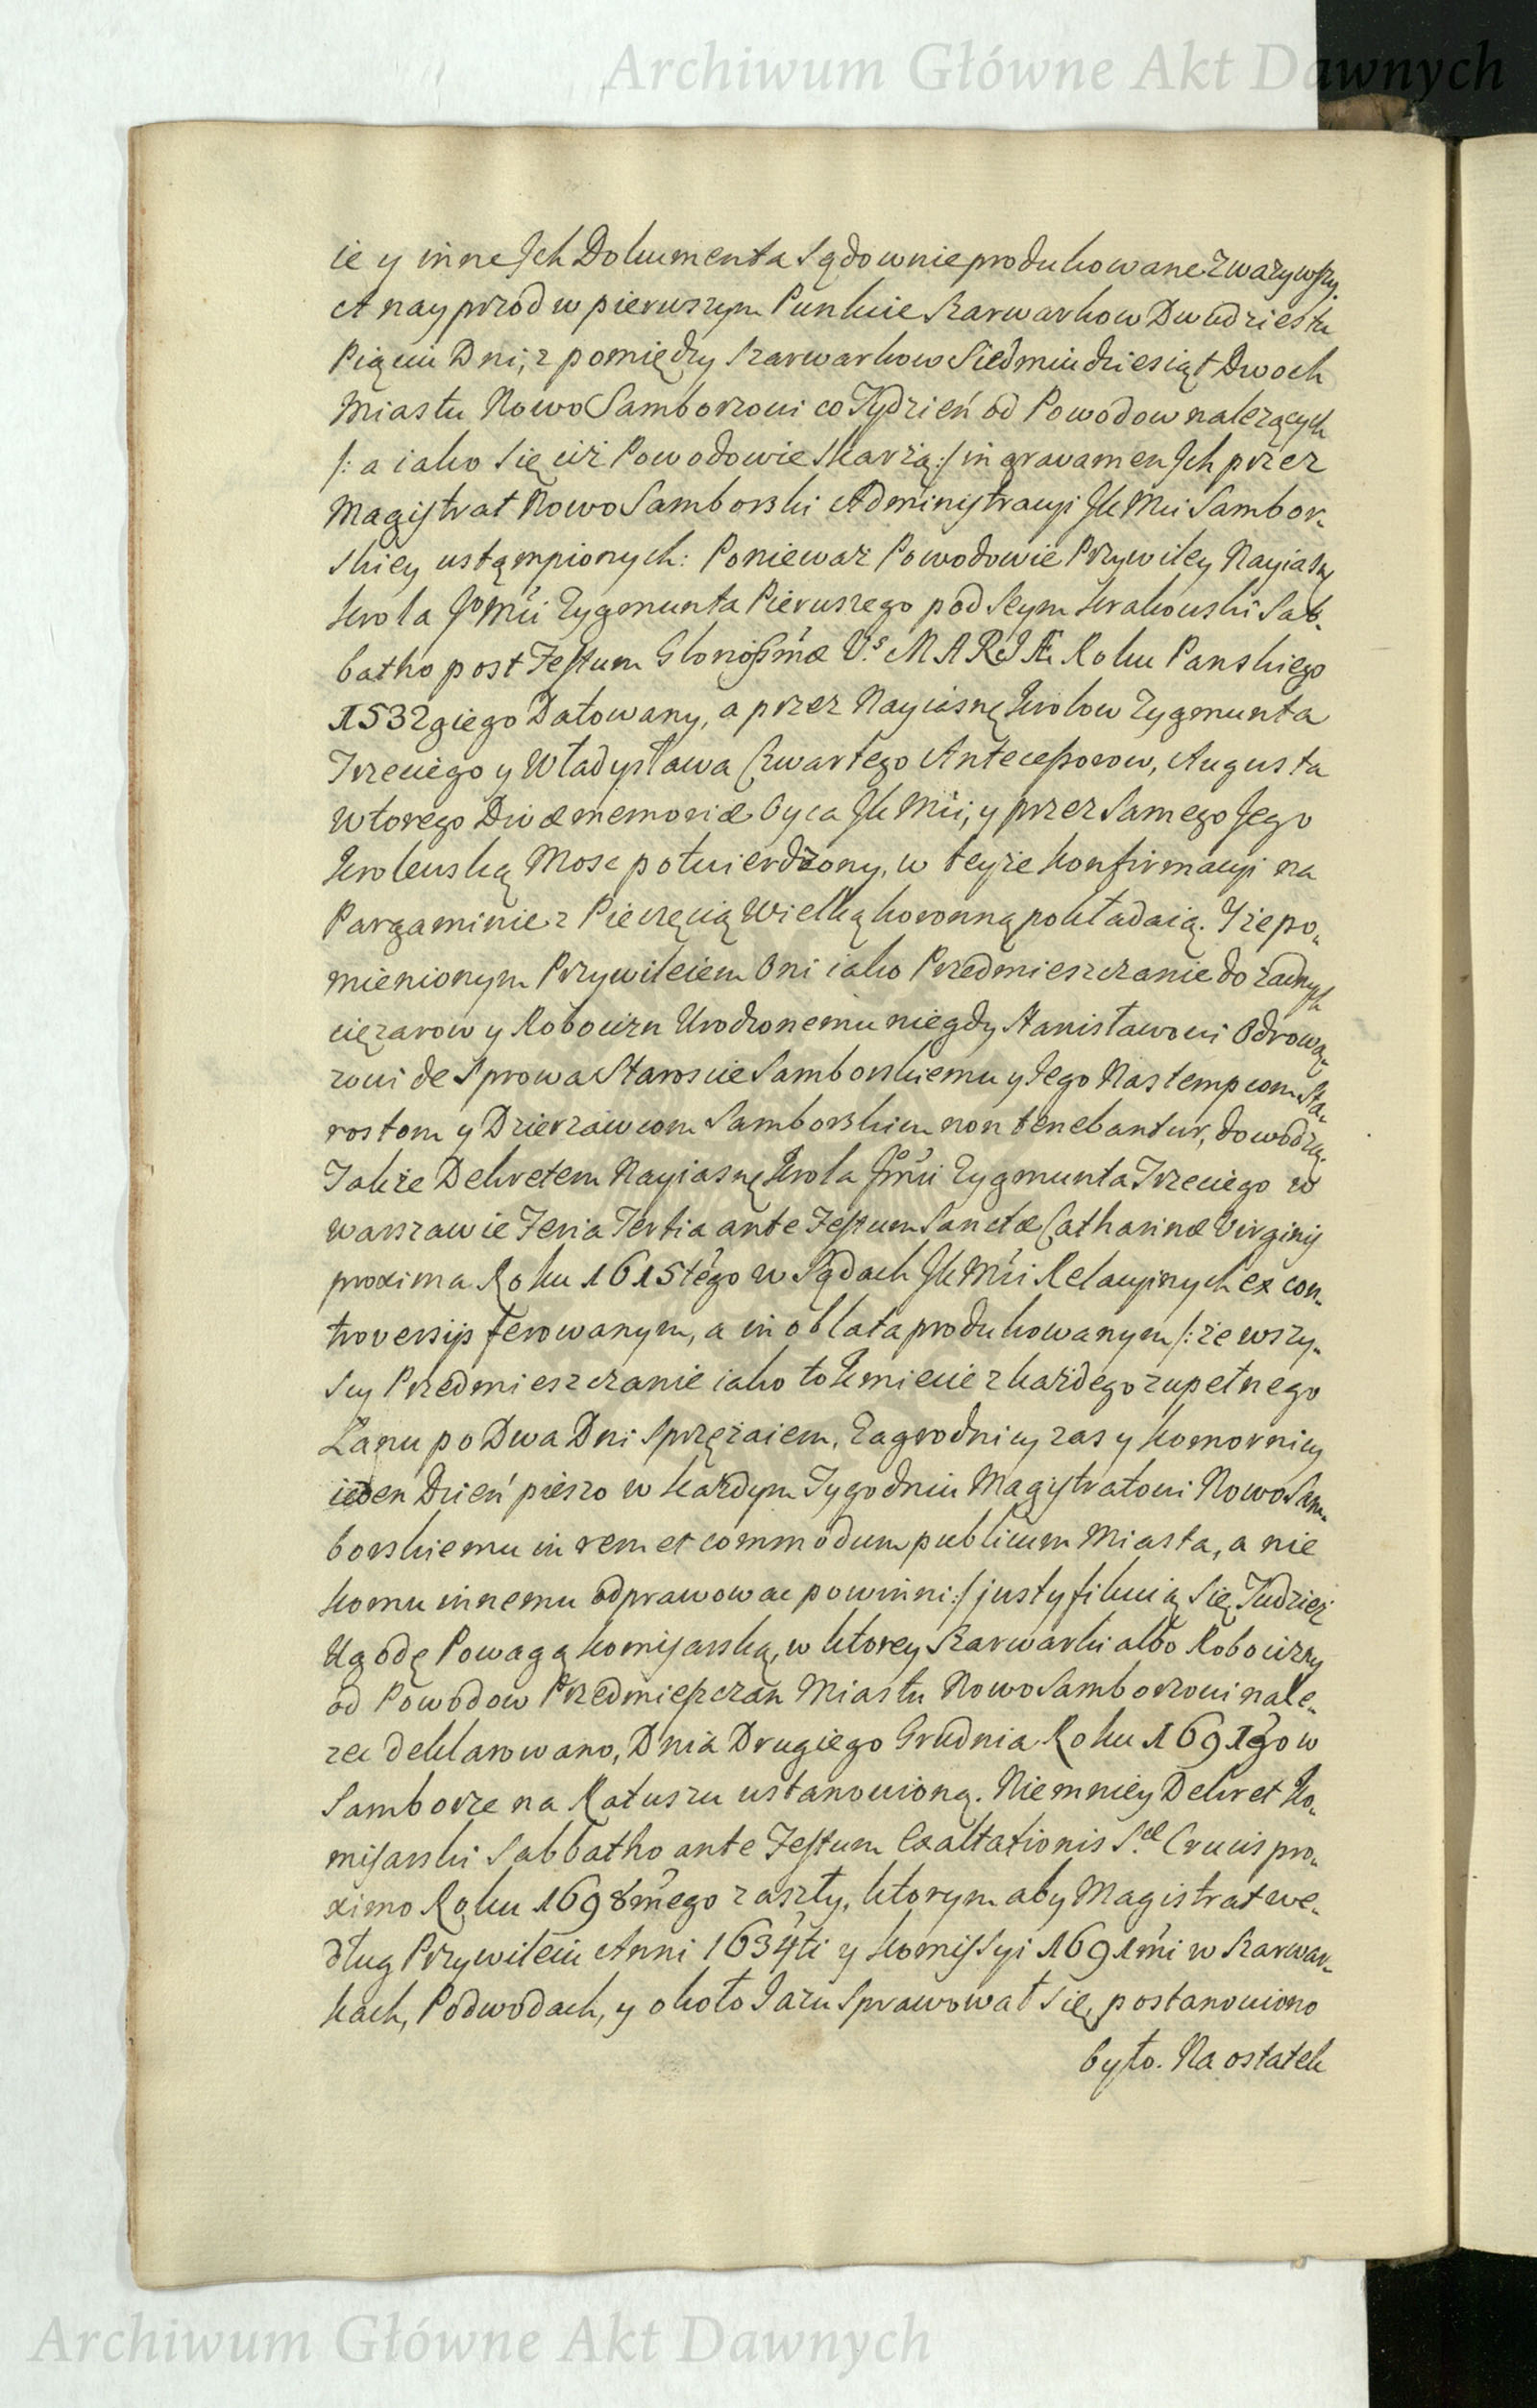 Archiwum Główne Akt Dawnych
ie y inne Jch Dokumenta Sądownie produkowane zwazywszy.
A nayprzod w pierwszym Punkcie Szarwarkow Dwudziestu
Pięciu Dni, z pomiędzy Szarwarkow Siedmiudziesiąt Dwoch
Miastu Nowo Samborzowi co Tydzień od Powodow nalezących
/: a iako się ciż Powodowie skarżą :/ in gravamen Jch przez
Magistrat Nowo Samborski Administracyi JK Mci Sambor-
skiey ustąmpionych: Ponieważ Powodowie Przywiley Nayiasnę
Krola Jo Mći Zygmunta Pierwszego pod Seym Krakowski Sab-
batho post Festum Gloriosissmæ V.s MARIÆ Roku Panskiego
1532giego Datowany, a przez Nayiasnę Krolow Zygmunta
Trzeciego y Władysława Czwartego Antecessorow, Augusta
Wtorego Divæ memoriæ Oyca JK Mći, y przez Samego Jego
Krolewską Mosc potwierdzony, w teyże konfirmacyi na
Pargaminie z Pieczęcią Wielką koronną pokładaią. Jż po-
mienionym Przywileiem Oni iako Przedmieszczanie do żadnych
ciężarow y Robocizn Urodzonemu niegdy Stanisławowi Odrową-
zowi de Sprowa Staroscie Samborskiemu y Jego Nastempcom Sta-
rostom y Dzierzawcom Samborskim non tenebantur, dowodzą.
Jakże Dekretem Nayiasnę Krola Jo Mći Zygmunta Trzeciego w
Warszawie Feria Tertia ante Festum Sanctæ Catharinæ Virginis
proxima Roku 1615tégo w Sądach JK Mći Relacyinych ex con-
troversijs ferowanym, a in oblata produkowanym /: że wszy-
scy Przedmieszczanie iako to Kmiecie z każdego zupełnego
Łanu po Dwa Dni Sprzężaiem, Zagrodnicy zas y komornicy
ieden Dzień pieszo w każdym Tygodniu Magistratowi Nowo Sam-
borskiemu in rem et commodum publicum Miasta, a nie
komu innemu odprawowac powinni :/ justyfikuią się, Tudzież
Ugodę Powagą komisarską, w ktorey Szarwarki albo Robocizny
od Powodow Przedmieszczan Miastu Nowo Samborzowi nale-
zec deklarowano, Dnia Drugiego Grudnia Roku 1691go w
Samborze na Ratuszu ustanowioną. Niemniey Dekret Ko-
misarski Sabbatho ante Festum Exaltationis S.æ Crucis pro-
ximo Roku 1698mégo zaszły, ktorym aby Magistrat we-
dług Przywileiu Anni 1634ti y komissyi 1691mi w Szarwar-
kach, Podwodach, y około Jazu sprawował się, postanowiono
było. Na ostatek
Archiwum Główne Akt Dawnych